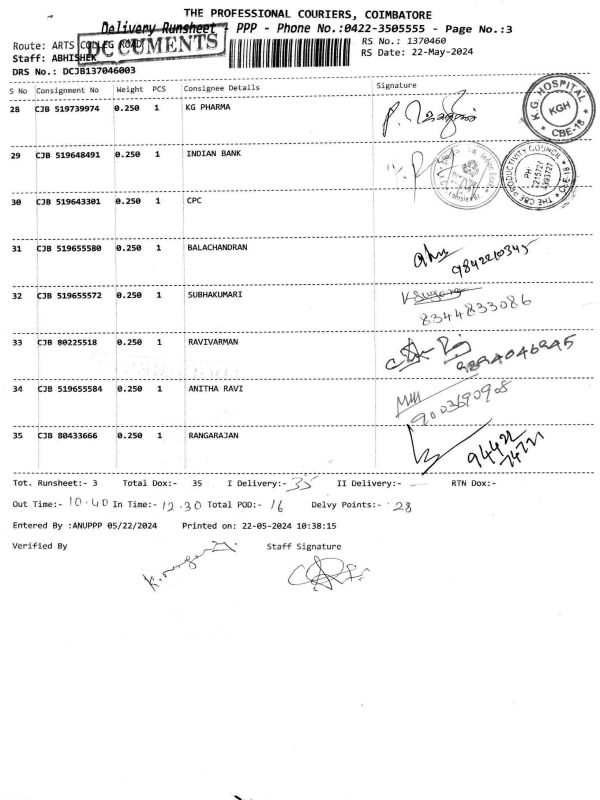 THE PROFESSIONAL COURIERS, COIMBATORE
Delivery Runsheet - PPP - Phone No.:0422-3505555 - Page No.:3
Route: ARTS COLLEG ROAD
DOCUMENTS
RS No.: 1370460
Staff: ABHISHEK
RS Date: 22-May-2024
DRS No.: DCJB137046003
S No Consignment No Weight PCS Consignee Details Signature
28 CJB 519739974 0.250 1 KG PHARMA
K.G. HOSPITAL KGH * CBE-18 *
29 CJB 519648491 0.250 1 INDIAN BANK
THE CBE PRODUCTIVITY COUNCIL * CBE-18 * PH:
30 CJB 519643301 0.250 1 CPC
31 CJB 519655580 0.250 1 BALACHANDRAN
9842210345
32 CJB 519655572 0.250 1 SUBHAKUMARI
8344833086
33 CJB 80225518 0.250 1 RAVIVARMAN
9894046945
34 CJB 519655584 0.250 1 ANITHA RAVI
9003690908
35 CJB 80433666 0.250 1 RANGARAJAN
94422
74721
Tot. Runsheet:- 3 Total Dox:- 35 I Delivery:- 35 II Delivery:- RTN Dox:-
Out Time:- 10.40 In Time:- 12.30 Total POD:- 16 Delvy Points:- 28
Entered By :ANUPPP 05/22/2024 Printed on: 22-05-2024 10:38:15
Verified By Staff Signature